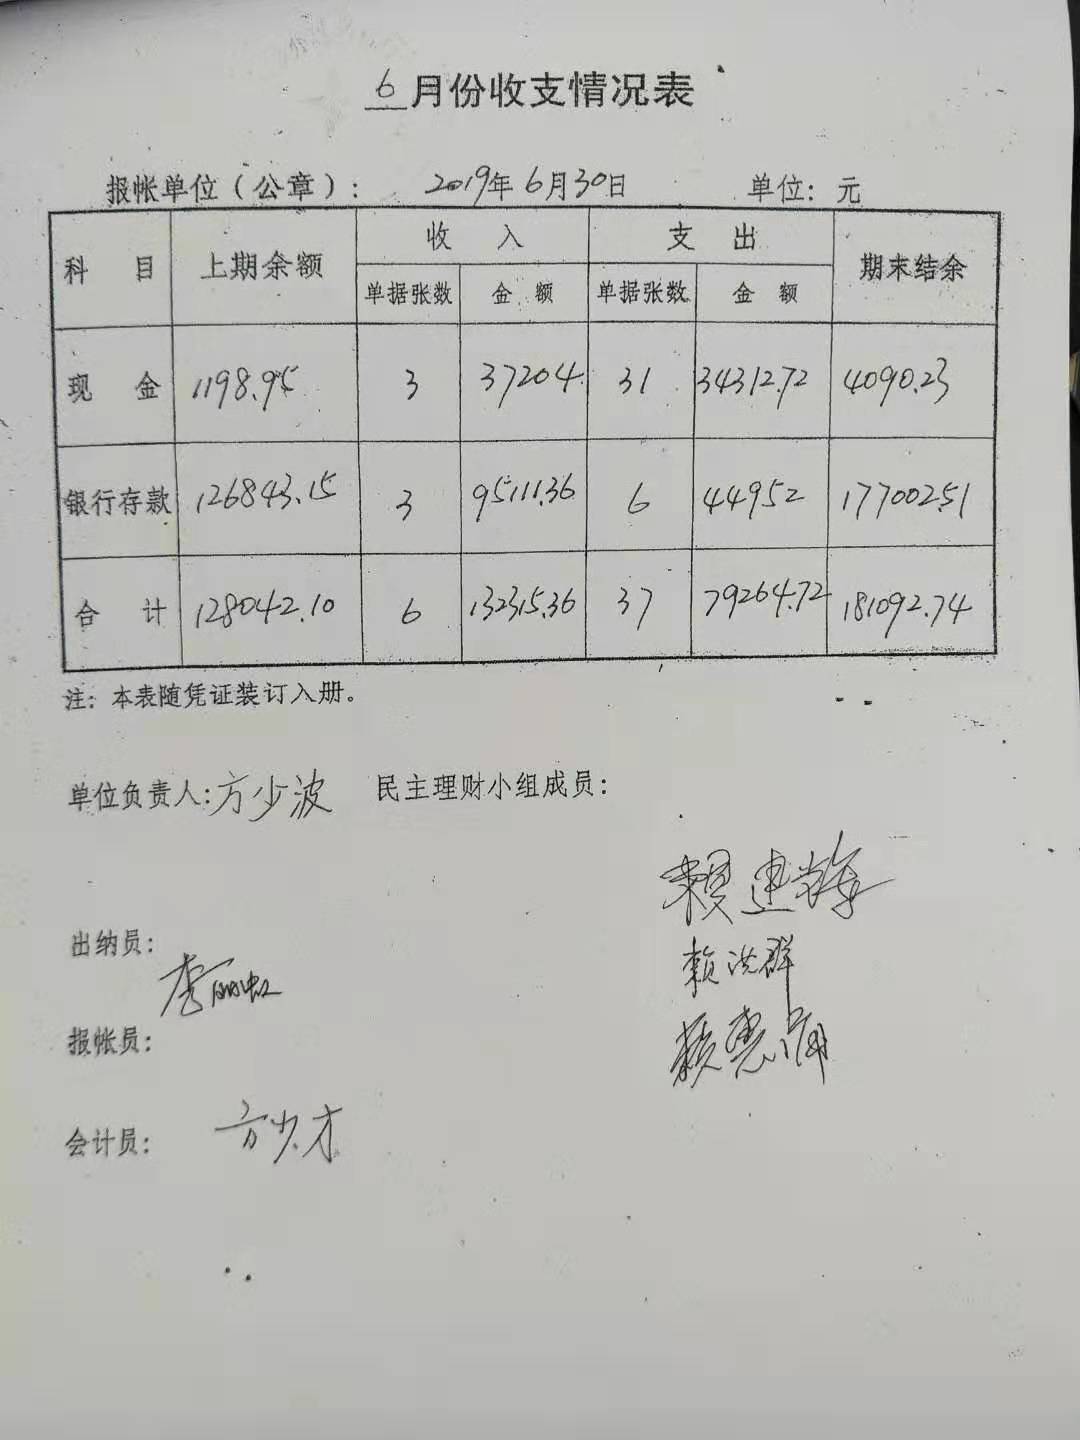 6月份收支情况表
报帐单位（公章）： 2019年6月30日 单位：元
科 目 上期余额 收 入 支 出 期末结余
单据张数 金 额 单据张数 金 额
现 金 1198.95 3 37204. 31 34312.72 4090.23
银行存款 126843.15 3 95111.36 6 44952 177002.51
合 计 128042.10 6 132315.36 37 79264.72 181092.74
注：本表随凭证装订入册。
单位负责人：方少波 民主理财小组成员：
赖建
出纳员： 赖洪群
李丽虹
报帐员： 赖惠
会计员： 方少才